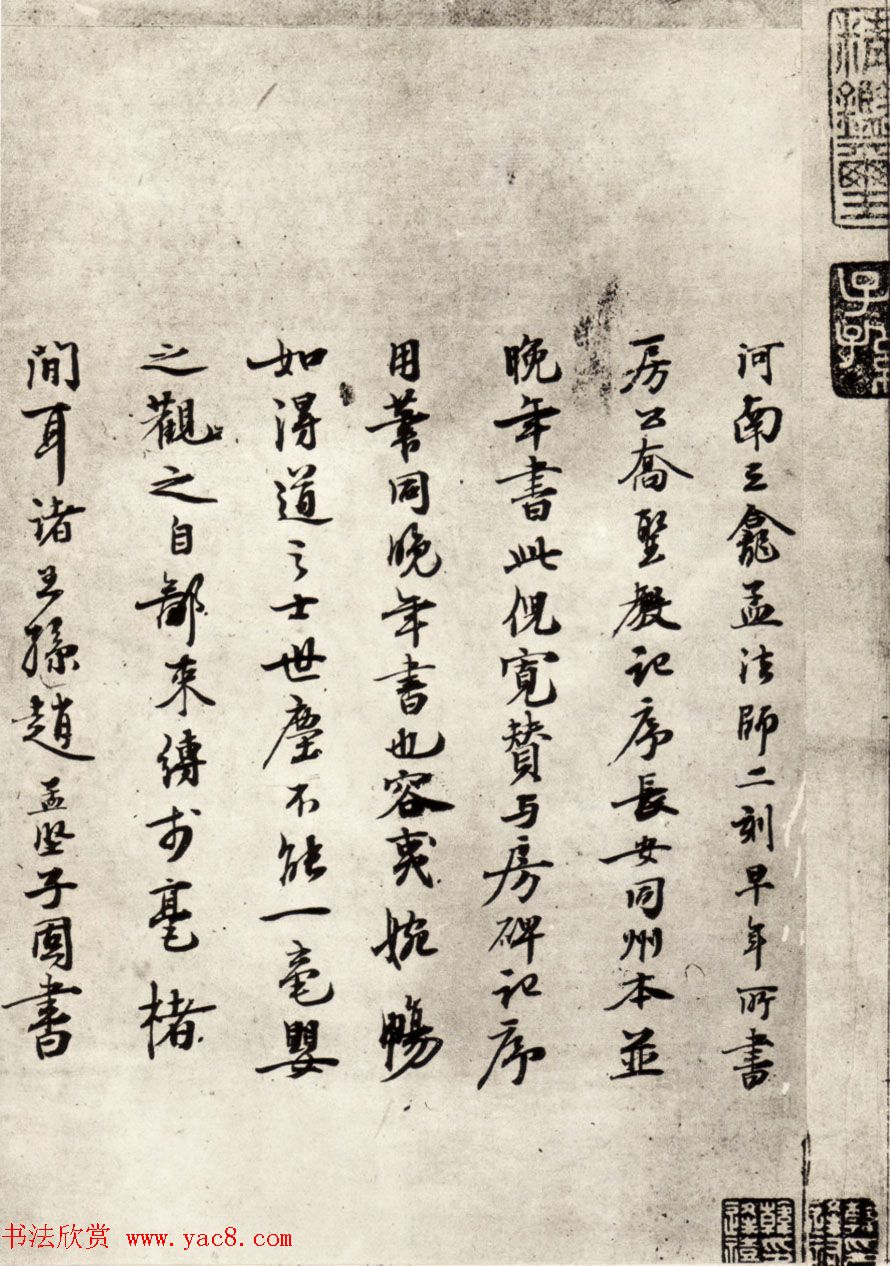 河南三龕孟法師二刻早年所書
房公喬聖教記序長安同州本並
晚年書此倪寬贊与房碑記序
用筆同晚年書也容夷婉暢
如得道之士世塵不能一毫嬰
之觀之自鄙束縛於毫楮
間耳諸王孫趙孟堅子固書
书法欣赏 www.yac8.com